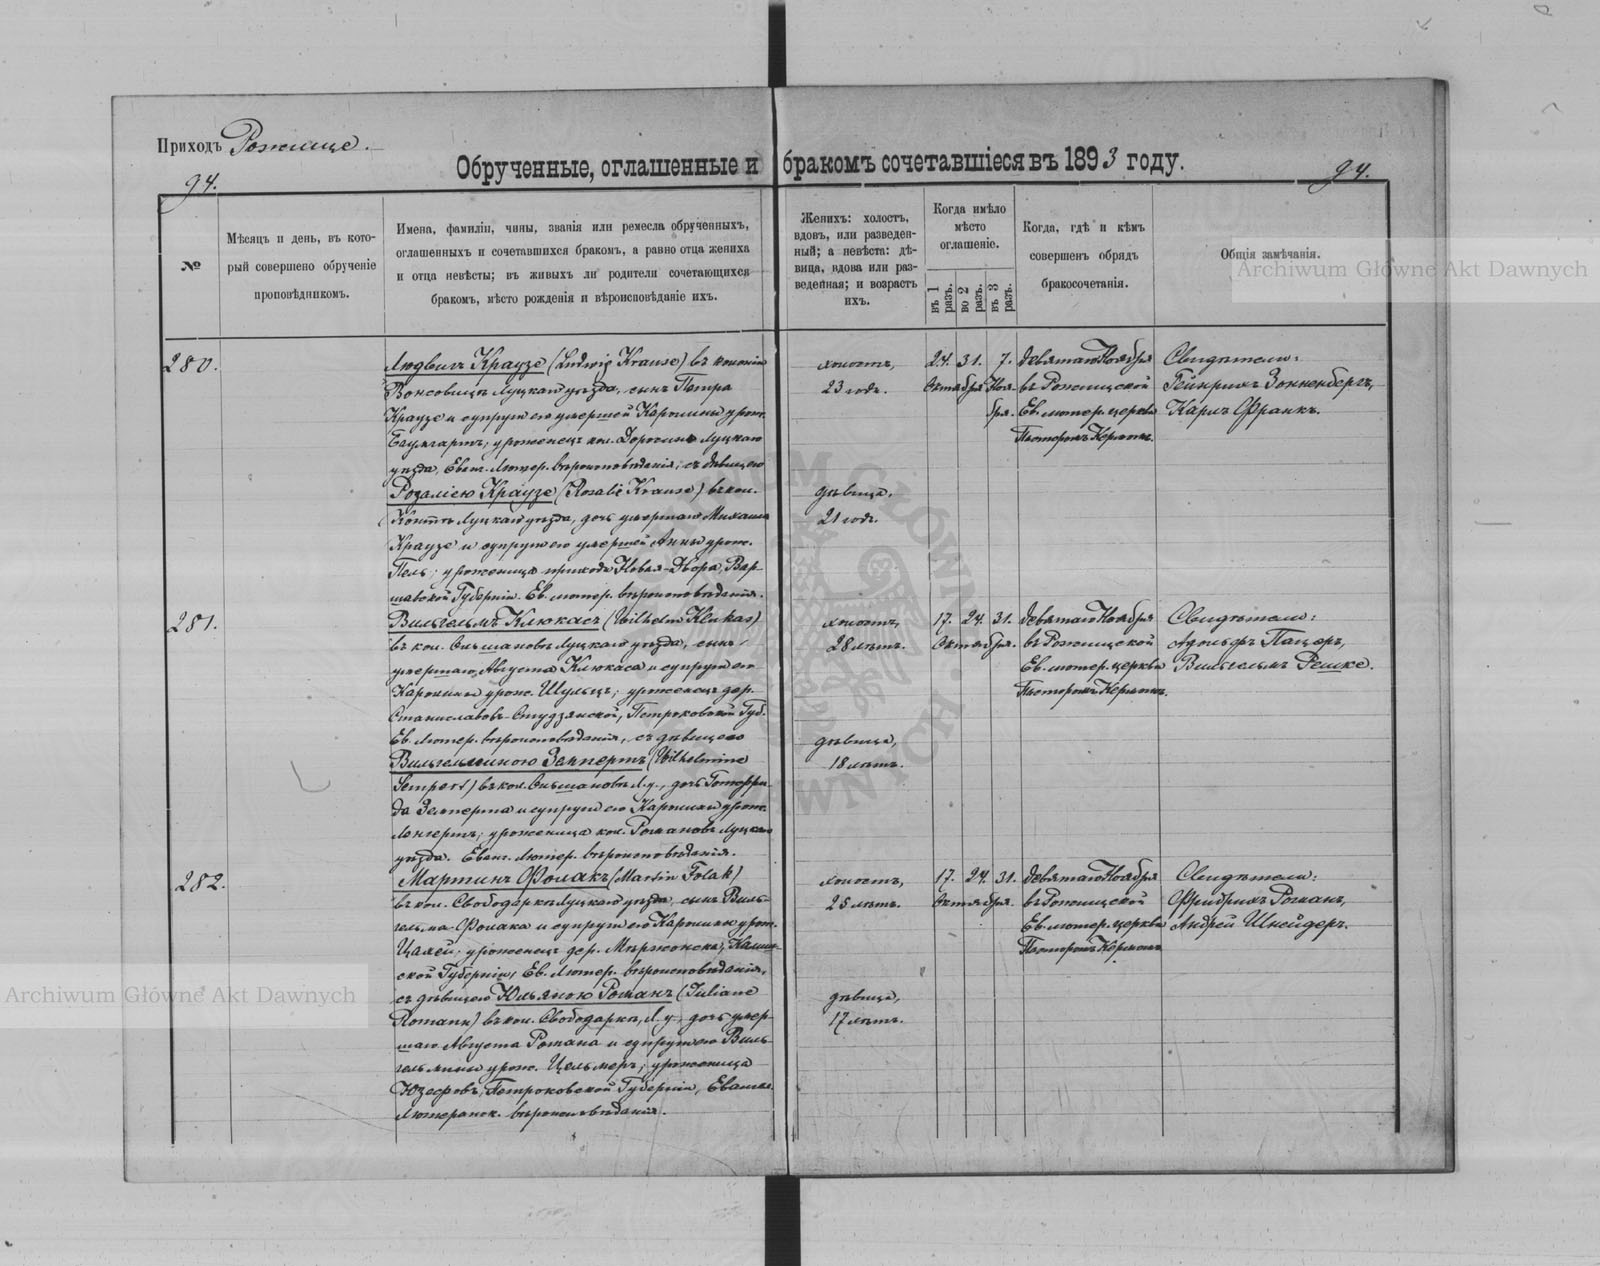 Приходъ Рожище.
Обрученные, оглашенные и бракомъ сочетавшіеся въ 1893 году.
94.
94.
№
Мѣсяцъ и день, въ кото-
рый совершено обрученіе
проповѣдникомъ.
Имена, фамиліи, чины, званія или ремесла обрученныхъ,
оглашенныхъ и сочетавшихся бракомъ, а равно отца жениха
и отца невѣсты; въ живыхъ ли родители сочетающихся
бракомъ, мѣсто рожденія и вѣроисповѣданіе ихъ.
Женихъ: холостъ,
вдовъ, или разведен-
ный; а невѣста: дѣ-
вица, вдова или раз-
веденная; и возрастъ
ихъ.
Когда имѣло
мѣсто
оглашеніе.
въ 1 разъ.
во 2 разъ.
въ 3 разъ.
Когда, гдѣ и кѣмъ
совершенъ обрядъ
бракосочетанія.
Общія замѣчанія.
280.
Людвигъ Краузе (Ludwig Krause) въ колоніи
Луцкаго уѣзда, сынъ Петра
Краузе и супруги его умершей Каролины урож.
Баумгартъ; уроженецъ кол. Луцкаго
уѣзда, Еванг. Лютер. вѣроисповѣданія, съ дѣвицею
Розаліею Краузе (Rosalie Krause) въ кол.
Луцкаго уѣзда, дочь умершаго Михаила
Краузе и супруги его умершей Анны урож.
уроженица прихода Новая-Двора, Вар-
шавской Губерніи. Ев. лютер. вѣроисповѣданія.
холостъ,
23 годъ.
дѣвица,
21 годъ.
24. 31. 7.
Октября Ноя-
бря.
девятаго Ноября
въ Рожищской
Ев. лютер. церкви
Пасторомъ Кермомъ.
Свидѣтели:
Гейнрихъ Зонненбергъ,
Карлъ Франкъ.
281.
Вильгельмъ Клюкасъ (Wilhelm Klukas)
въ кол. Ольшановъ Луцкаго уѣзда, сынъ
умершаго Августа Клюкаса и супруги его
Каролины урож. Шульцъ; уроженецъ дер.
Станиславовъ-Студзянской, Петроковской Губ.
Ев. Лютер. вѣроисповѣданія, съ дѣвицею
Вильгельминою Земпертъ (Wilhelmine
Sempert) въ кол. Ольшановъ Л. у., дочь Готфри-
да Земперта и супруги его Каролины урож.
уроженица кол. Романовъ Луцкаго
уѣзда. Еванг. Лютер. вѣроисповѣданія.
холостъ,
28 лѣтъ.
дѣвица,
18 лѣтъ.
17. 24. 31.
Октября.
девятаго Ноября
въ Рожищской
Ев. лютер. церкви
Пасторомъ Кермомъ.
Свидѣтели:
Адольфъ Пацеръ,
Вильгельмъ Решке.
282.
Мартинъ Фолакъ (Martin Folak)
въ кол. Свободарка Луцкаго уѣзда, сынъ Виль-
гельма Фолака и супруги его Каролины урож.
уроженецъ дер. Калиш-
ской Губерніи, Ев. Лютер. вѣроисповѣданія,
съ дѣвицею Юліаною Романъ (Juliane
Romann) въ кол. Свободарка, Л. у. дочь умер-
шаго Августа Романа и супруги его Виль-
гельмины урож. Цельмеръ; уроженица
Юзефовъ, Петроковской Губерніи, Еванг.
Лютеранск. вѣроисповѣданія.
холостъ,
25 лѣтъ.
дѣвица,
17 лѣтъ.
17. 24. 31.
Октября.
девятаго Ноября
въ Рожищской
Ев. лютер. церкви
Пасторомъ Кермомъ
Свидѣтели:
Фридрихъ Романъ,
Андрей Шнейдеръ.
Archiwum Główne Akt Dawnych
Archiwum Główne Akt Dawnych